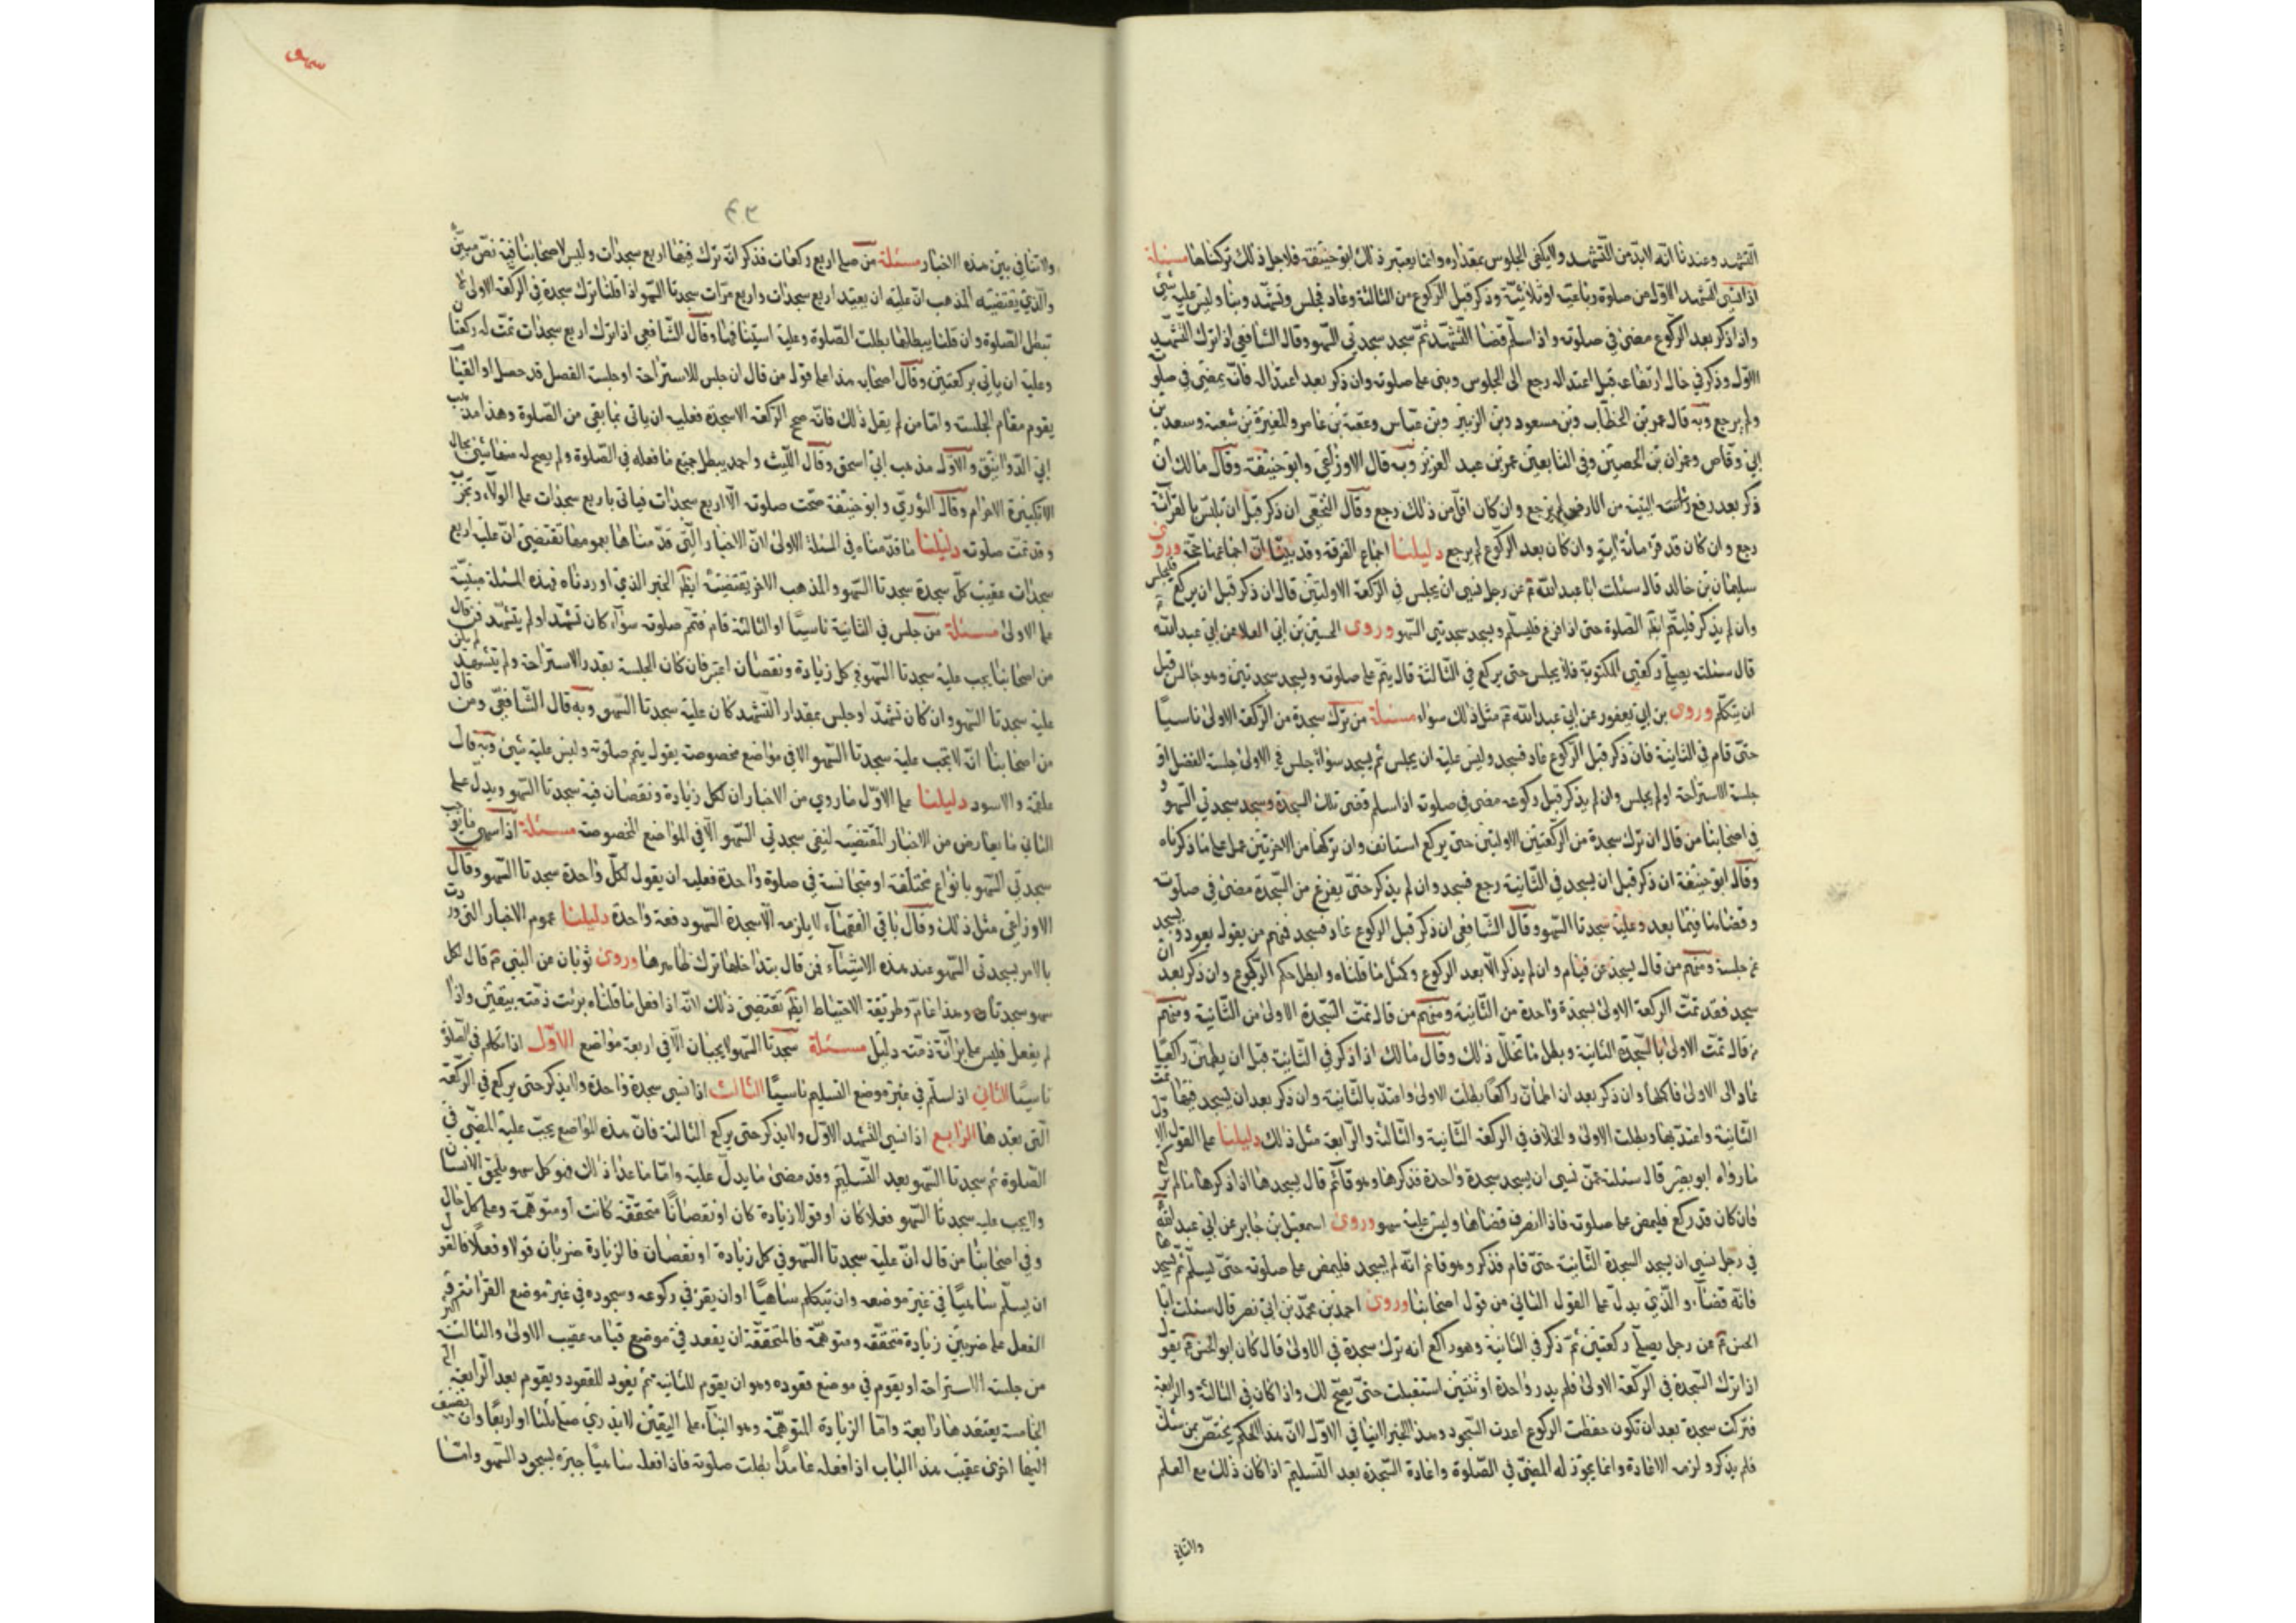 التشهد وعندنا انه لابد من التشهد ولا يكفى الجلوس بمقداره وانما يعتبر ذلك ابو حنيفة فلاجل ذلك تركناها مسئلة
اذا نسى التشهد الاول من صلوة رباعية او ثلاثية وذكر قبل الركوع من الثالثة وعاد فجلس وتشهد وبنا وليس عليه شئ
واذا ذكر بعد الركوع مضى في صلوته واذا سلم قضا التشهد ثم سجد سجدتي السهو وقال الشافعي اذا ترك التشهد
الاول وذكر في حال ارتفاعه قبل اعتداله رجع الى الجلوس وبنى على صلوته وان ذكر بعد اعتداله فانه يمضي في صلوته
ولم يرجع وبه قال عمر بن الخطاب وبن مسعود وبن الزبير وبن عباس وعقبة بن عامر والمغيرة بن شعبة وسعد بن
ابي وقاص وعمران بن الحصين وفى التابعين عمر بن عبد العزيز وبه قال الاوزاعي وابو حنيفة وقال مالك ان
ذكر بعد رفع اليته من الارض لم يرجع وان كان اقل من ذلك رجع وقال النخعي ان ذكر قبل ان يتلبس بالقرائة
رجع وان كان قد قرء مائة اية وان كان بعد الركوع لم يرجع دليلنا اجماع الفرقة وقد بينا ان اجماعها حجة وروى
سليمان بن خالد قال سئلت ابا عبد الله ع عن رجل نسى ان يجلس في الركعة الاوليين قال ان ذكر قبل ان يركع فليجلس
وان لم يذكر فليتم الصلوة حتى اذا فرغ فليسلم ويسجد سجدتي السهو وروى الحسين بن ابي العلا عن ابي عبد الله
قال سئلته يصلي ركعتي المكتوبة فلا يجلس حتى يركع في الثالثة قال يتم على صلوته ويسجد سجدتين وهو جالس قبل
ان يتكلم وروى بن ابي يعفور عن ابي عبد الله ع مثل ذلك سواء مسئلة من ترك سجدة من الركعة الاولى ناسيا
حتى قام في الثانية فان ذكر قبل الركوع عاد فسجد وليس عليه ان يجلس ثم يسجد سواء جلس في الاولى جلسة الفصل او
جلسة الاستراحة او لم يجلس وان لم يذكر قبل ركوعه مضى في صلوته اذا سلم قضى تلك السجدة وسجد سجدتي السهو و
في اصحابنا من قال ان ترك سجدة من الركعتين الاوليتين حتى يركع استانف وان تركها من الاخرتين عمل على ما ذكرناه
وقال ابو حنيفة ان ذكر قبل ان يسجد في الثانية رجع فسجد وان لم يذكر حتى يفرغ من السجدة مضى في صلوته
وقضاها فيما بعد وعليه سجدتا السهو وقال الشافعي ان ذكر قبل الركوع عاد فسجد فمنهم من يقول يعود ويسجد
عن جلسة ومنهم من قال يسجد عن قيام وان لم يذكر الا بعد الركوع وكمثل ما قلناه وابطل حكم الركوع وان ذكر بعد ان
سجد فقد تمت الركعة الاولى بسجدة واحدة من الثانية ومنهم من قال تمت السجدة الاولى من الثانية ومنهم
من قال تمت الاولى بالسجدة الثانية وبطل ما تخلل ذلك وقال مالك اذا ذكر في الثانية قبل ان يطمئن راكعا
عاد الى الاولى فاكملها وان ذكر بعد ان اطمأن راكعا بطلت الاولى واعتد بالثانية وان ذكر بعد ان يسجد فيها تمت
الثانية واعتد بها وبطلت الاولى والخلاف في الركعة الثانية والثالثة والرابعة مثل ذلك دليلنا على القول الاول
ما رواه ابو بصير قال سئلته عمن نسى ان يسجد سجدة واحدة فذكرها وهو قائم قال يسجدها اذا ذكرها ما لم يركع
فان كان قد ركع فليمض على صلوته فاذا انصرف قضاها وليس عليه سهو وروى اسمعيل بن جابر عن ابي عبد الله
في رجل نسى ان يسجد السجدة الثانية حتى قام فذكر وهو قائم انه لم يسجد فليمض على صلوته حتى يسلم ثم يسجدها
فانه قضاء والذي يدل على القول الثاني من قول اصحابنا وروى احمد بن محمد بن ابي نصر قال سئلت ابا
الحسن ع عن رجل يصلي ركعتين ثم ذكر في الثانية وهو راكع انه ترك سجدة في الاولى قال كان ابو الحسن ع يقول
اذا ترك السجدة في الركعة الاولى فلم يدر واحدة او ثنتين استقبلت حتى يصح لك واذا كان في الثالثة والرابعة
فتركت سجدة بعد ان تكون حفظت الركوع اعدت السجود وهذا الخبر لا ينافي الاول لان هذا الحكم يختص بمن شك
فلم يذكر ولزمه الاعادة وانما يجوز له المضي في الصلوة واعادة السجدة بعد التسليم اذا كان ذلك مع العلم
والتنافي
سهو
٤٣
ولا تنافي بين هذه الاخبار مسئلة من صلى اربع ركعات فذكر انه ترك فيها اربع سجدات وليس لاصحابنا فيه نص مبين
والذي يقتضيه المذهب ان عليه ان يعيد اربع سجدات واربع مرات سجدتا السهو اذا قلنا ترك سجدة في الركعة الاولى
تبطل الصلوة وان قلنا يبطلها بطلت الصلوة وعليه استينافها وقال الشافعي اذا ترك اربع سجدات تمت له ركعتان
وعليه ان ياتي بركعتين وقال اصحابه هذا على قول من قال ان جلس للاستراحة او جلسة الفصل قد حصل او القيام
يقوم مقام الجلسة واما من لم يقل ذلك فانه صح الركعة الا سجدة فعليه ان ياتى بما بقى من الصلوة وهذا مذهب
ابي الدوانيق والاول مذهب ابي اسحق وقال الليث واحمد يبطل جميع ما فعله في الصلوة ولم يصح له منها شئ بحال
الا تكبيرة الاحرام وقال الثوري وابو حنيفة صحت صلوته الا اربع سجدات فياتى باربع سجدات على الولاء وتجزيه
وقد تمت صلوته دليلنا ما قدمناه في المسئلة الاولى لان الاخبار التي قدمناها بعمومها تقتضي ان عليه اربع
سجدات عقيب كل سجدة سجدتا السهو والمذهب الاخر يقتضيه الخبر الذي اوردناه فهذه المسئلة مبنية
على الاولى مسئلة من جلس في الثانية ناسيا او الثالثة قام فتمم صلوته سواء كان تشهد او لم يتشهد فمن قال
من اصحابنا يجب عليه سجدتا السهو في كل زيادة ونقصان اعتبر فان كان الجلسة بقدر الاستراحة ولم يتشهد لم يكن
عليه سجدتا السهو وان كان تشهد او جلس بمقدار التشهد كان عليه سجدتا السهو وبه قال الشافعي ومن قال
من اصحابنا انه لا تجب عليه سجدتا السهو الا في مواضع مخصوصة يقول يتم صلوته وليس عليه شئ وبه قال
علقمة والاسود دليلنا على الاول ما روي من الاخبار ان لكل زيادة ونقصان فيه سجدتا السهو ويدل على
الثاني ما يعارض من الاخبار المقتضية لنفى سجدتي السهو الا في المواضع المخصوصة مسئلة اذا سهى ما يوجب
سجدتي السهو بانواع مختلفة او متجانسة في صلوة واحدة فعليه ان يقول لكل واحدة سجدتا السهو وقال
الاوزاعي مثل ذلك وقال باقي الفقهاء لا يلزمه الا سجدة السهو دفعة واحدة دليلنا عموم الاخبار التى وردت
بالامر بسجدتي السهو عند هذه الاشياء فمن قال بتداخلها ترك ظاهرها وروى ثوبان عن النبي ع قال لكل
سهو سجدتان وهذا عام وطريقة الاحتياط تقتضي ذلك لانه اذا فعل ما قلناه برئت ذمته بيقين واذا
لم يفعل فليس على برائة ذمته دليل مسئلة سجدتا السهو لا يجبان الا في اربعة مواضع الاول اذا تكلم في الصلوة
ناسيا الثاني اذ اسلم في غير موضع التسليم ناسيا الثالث اذا نسى سجدة واحدة ولا يذكر حتى يركع في الركعة
التي بعدها الرابع اذا نسى التشهد الاول ولا يذكر حتى يركع الثالثة فان هذه المواضع يجب عليه المضي في
الصلوة ثم سجدتا السهو بعد التسليم وقد مضى ما يدل عليه واما ما عدا ذلك فهو كل سهو يلحق الانسان
ولا يجب عليه سجدتا السهو فعلا كان او قولا زيادة كان او نقصانا متحققة كانت او متوهمة وعلى كل حال
وفي اصحابنا من قال ان عليه سجدتا السهو في كل زيادة او نقصان فالزيادة ضربان قولا وفعلا فالقول
ان يسلم ساهيا في غير موضعه وان يتكلم ساهيا او ان يقرء في ركوعه وسجوده في غير موضع القرائة
الفعل على ضربين زيادة متحققة ومتوهمة فالمتحققة ان يقعد في موضع قيامه عقيب الاولى والثالثة
من جلسة الاستراحة او يقوم في موضع قعوده وهو ان يقوم للثانية ثم يعود للقعود ويقوم بعد الرابعة الى
الخامسة يعتقدها رابعة واما الزيادة المتوهمة وهو البناء على اليقين لا يدري صلى ثلثا او اربعا وان يضيف
اليها اخرى عقيب هذا الباب اذا فعله عامدا بطلت صلوته فاذا فعله ساهيا جبره بسجود السهو واما